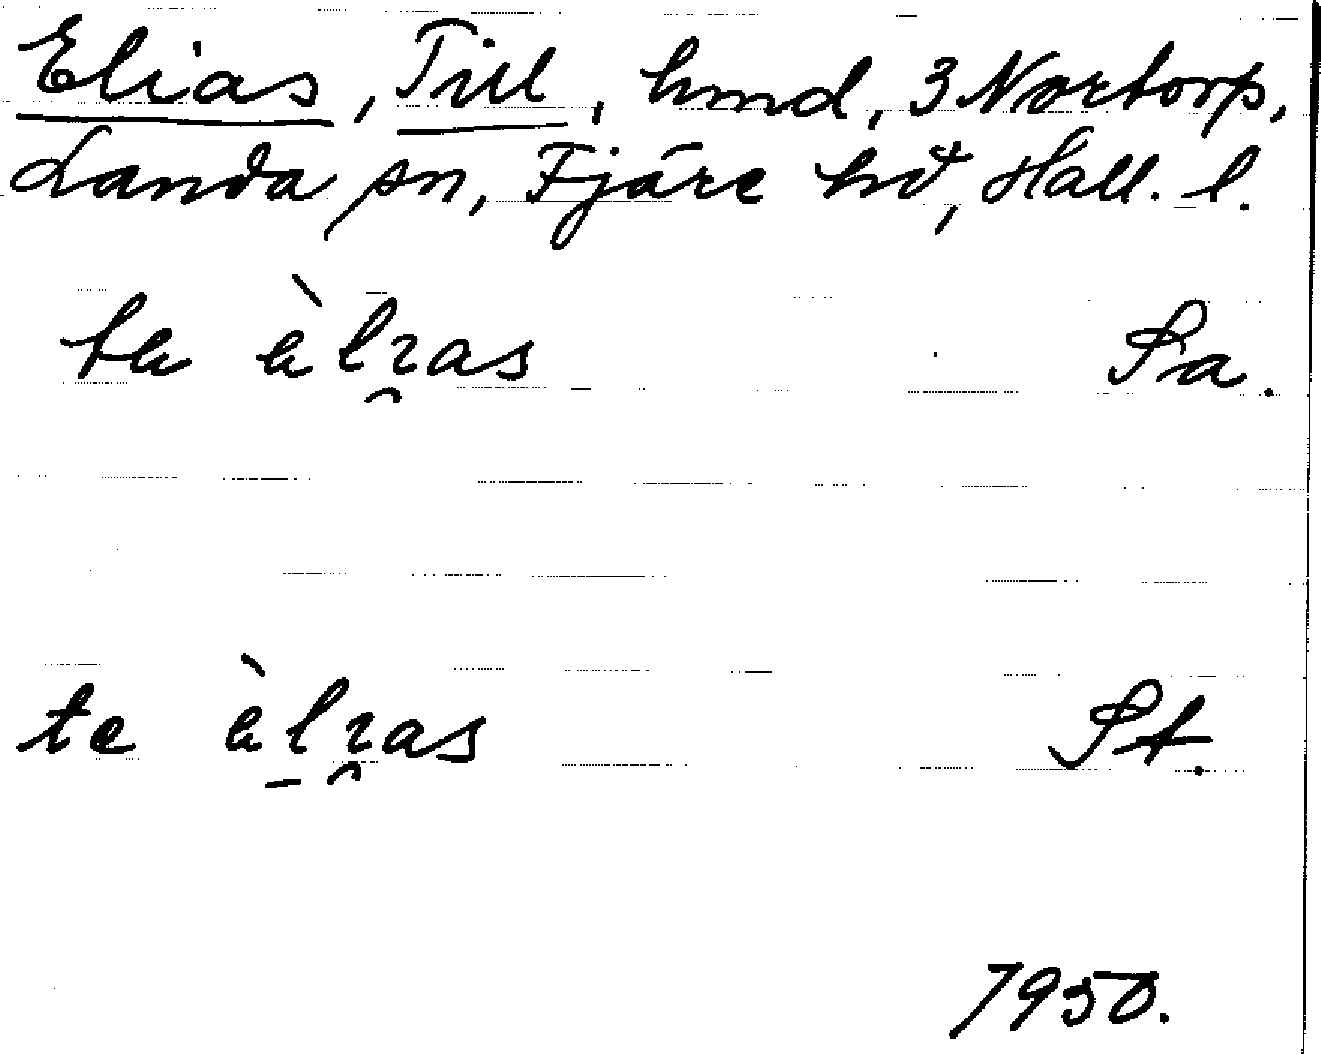 Elias, Till, hmd, 3 Nortorp,
Landa sn, Fjäre hd, Hall. l.
ta èlı̯as Sa.
te èl̠ı̯as St.
1950.